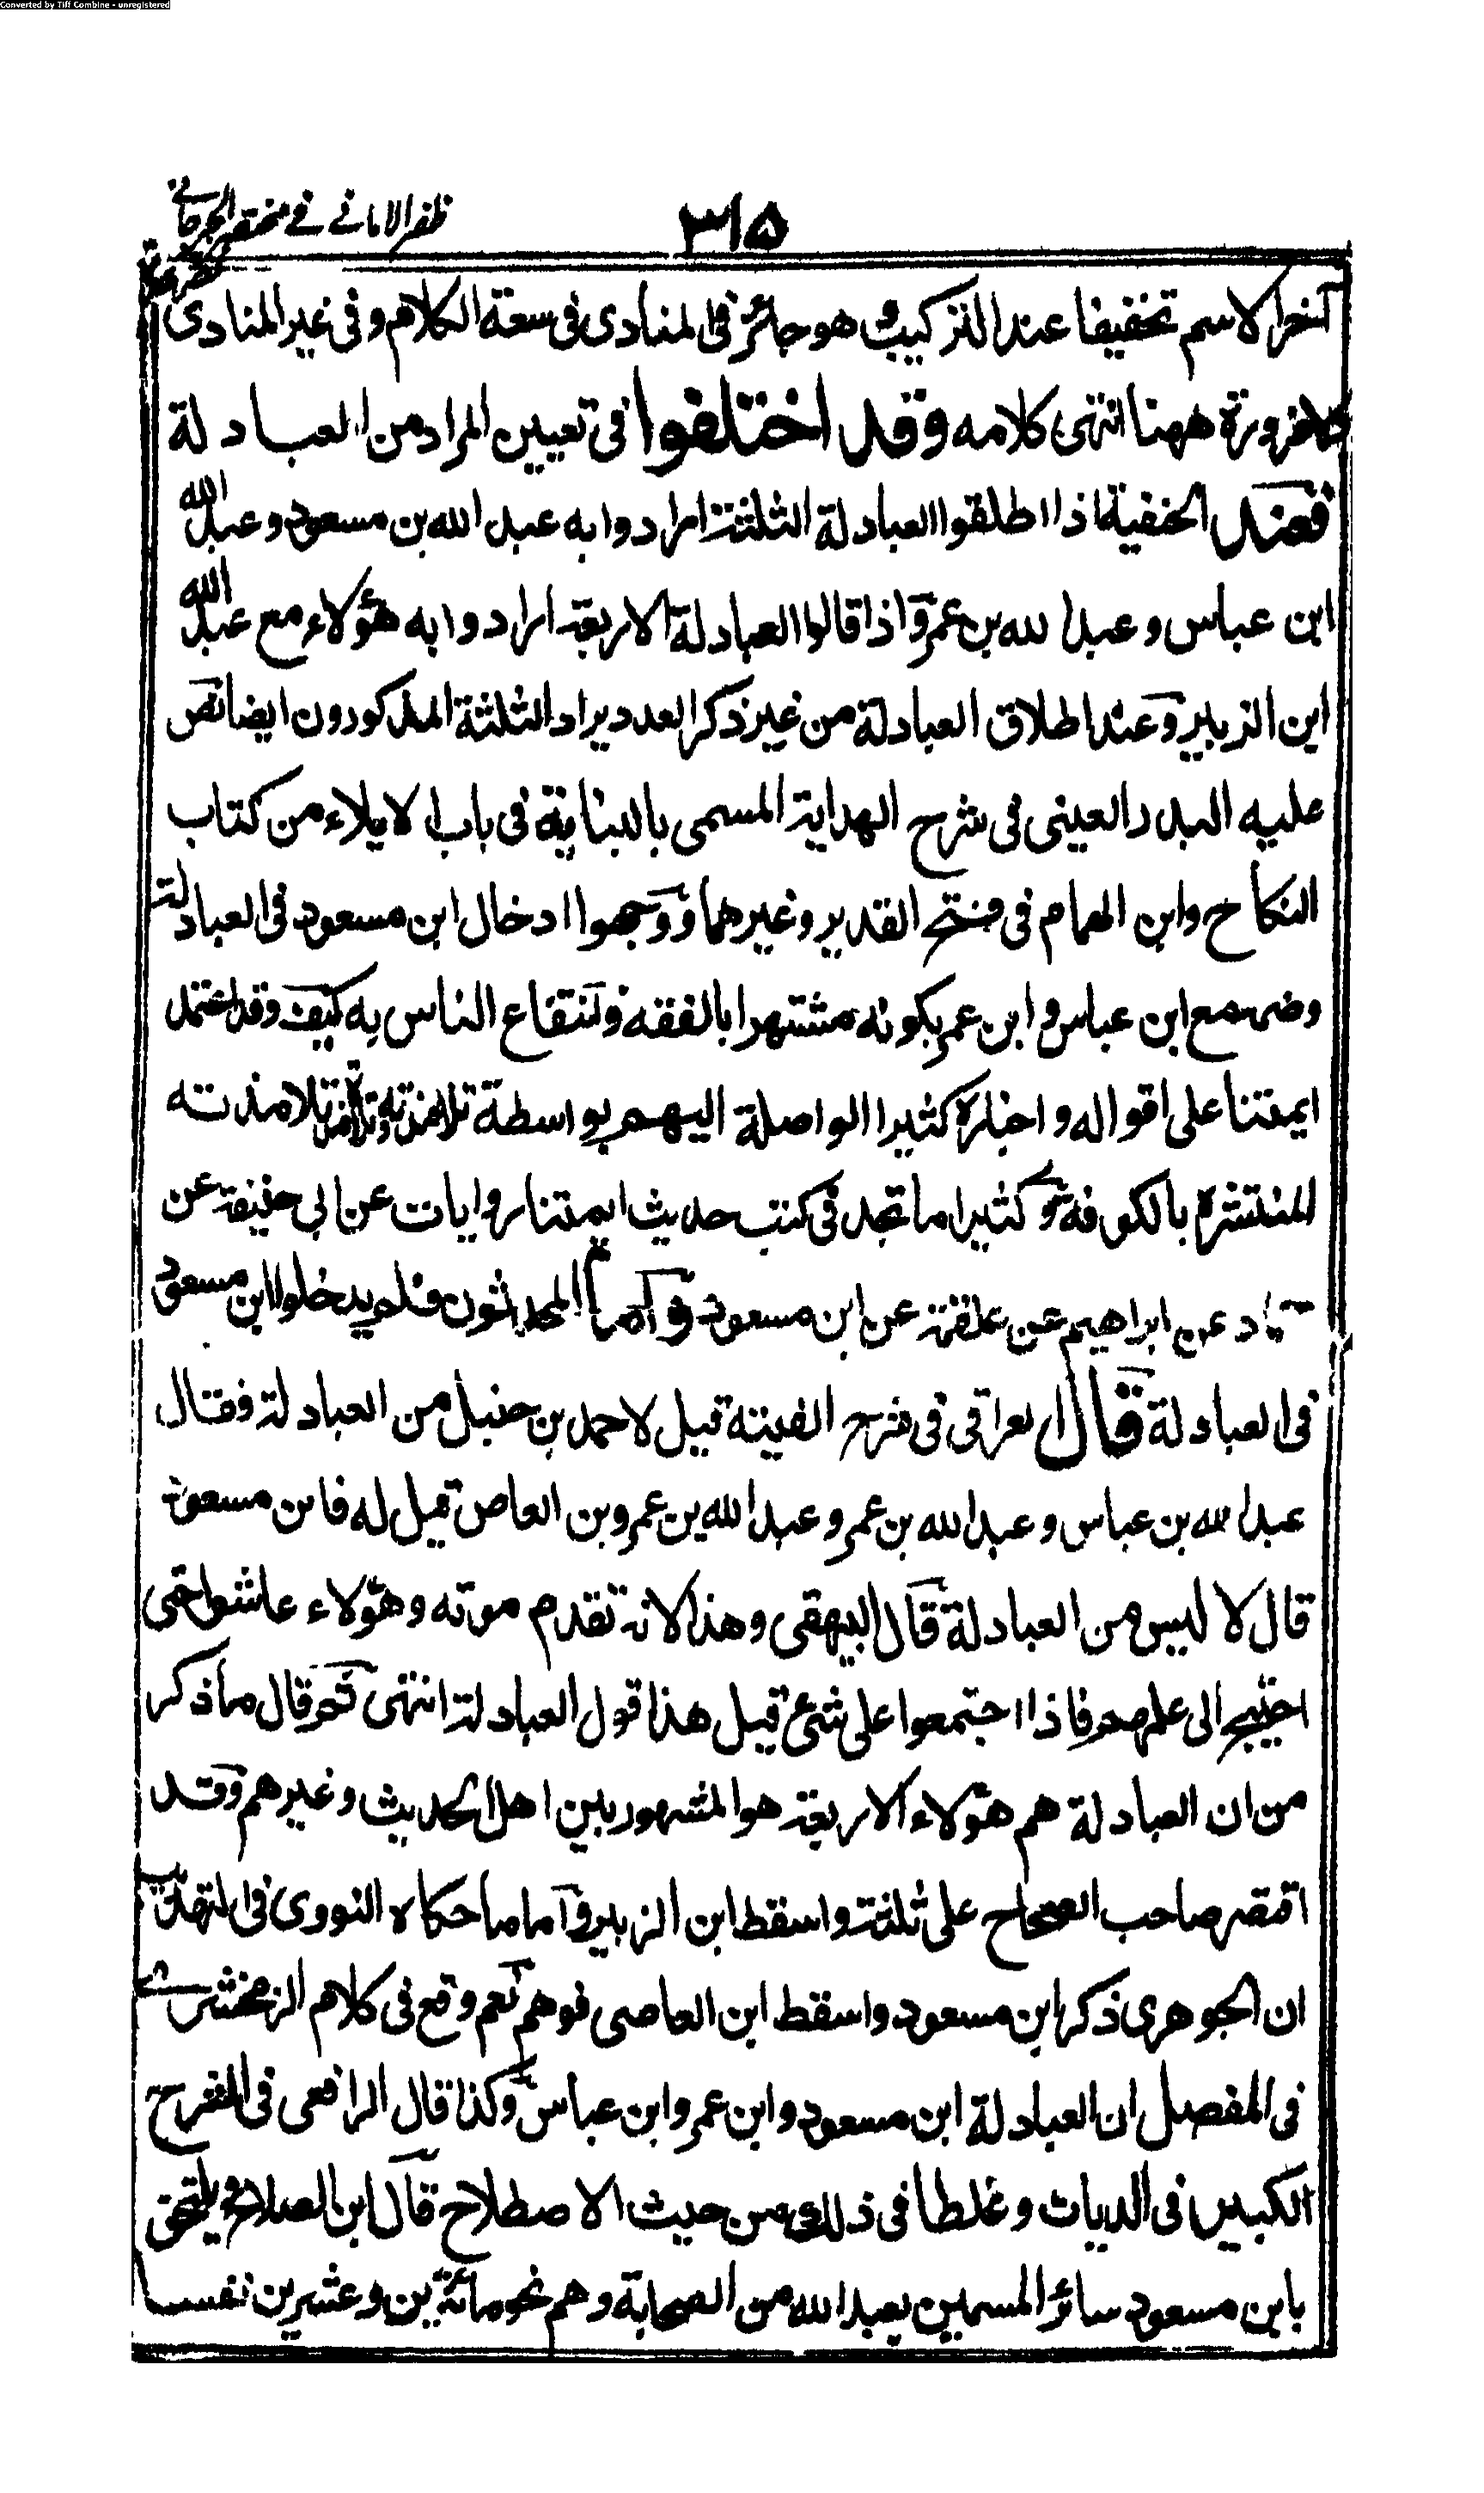 Converted by Tiff Combine - unregistered
ظفر الامانے فے مختصر الجرجانے
٣١٥
آخر الاسم تخفيفا عند التركيب وهو جائز في المنادى في سعة الكلام وفي غير المنادى
للضرورة ههنا انتهى كلامه وقد اختلفوا في تعيين المراد من العبادلة
فعند الحنفية اذا اطلقوا العبادلة الثلثة ارادوا به عبد الله بن مسعود وعبد الله
ابن عباس وعبد الله بن عمر واذا قالوا العبادلة الاربعة ارادوا به هؤلاء مع عبد الله
ابن الزبير وعند اطلاق العبادلة من غير ذكر العدد يراد الثلثة المذكورون ايضا نص
عليه البدر العيني في شرح الهداية المسمى بالبناية في باب الايلاء من كتاب
النكاح وابن الهمام في فتح القدير وغيرهما ووجهوا ادخال ابن مسعود في العبادلة
وضمه مع ابن عباس وابن عمر بكونه مشتهرا بالفقه وانتفاع الناس به كيف وقد اعتمد
ايمتنا على اقواله واخباره كثيرا الواصلة اليهم بواسطة تلامذته وتلامذة تلامذته
المنتشرة بالكوفة وكثيرا ما تجد في كتب حديث ايمتنا روايات عن ابي حنيفة عن
حماد عن ابراهيم عن علقمة عن ابن مسعود واما المحدثون فلم يدخلوا ابن مسعود
في العبادلة قال العراقي في شرح الفيته قيل لاحمد بن حنبل من العبادلة فقال
عبد الله بن عباس وعبد الله بن عمر وعبد الله بن عمرو بن العاص قيل له فابن مسعود
قال لا ليس من العبادلة قال البيهقي وهذا لانه تقدم موته وهؤلاء عاشوا حتى
احتيج الى علمهم فاذا اجتمعوا على شئ قيل هذا قول العبادلة انتهى ثم قال ما ذكر
من ان العبادلة هم هؤلاء الاربعة هو المشهور بين اهل الحديث وغيرهم وقد
اقتصر صاحب الصحاح على ثلثة واسقط ابن الزبير واما ما حكاه النووي في التهذيب
ان الجوهري ذكر ابن مسعود واسقط ابن العاصى فوهم نعم وقع في كلام الزمخشرے
في المفصل ان العبادلة ابن مسعود وابن عمر وابن عباس وكذا قال الرافعي في الشرح
الكبير في الديات وغلطا في ذلك من حيث الاصطلاح قال ابن الصلاح ويلتحق
بابن مسعود سائر المسمين بعبد الله من الصحابة وهم نحو مائتين وعشرين نفسا